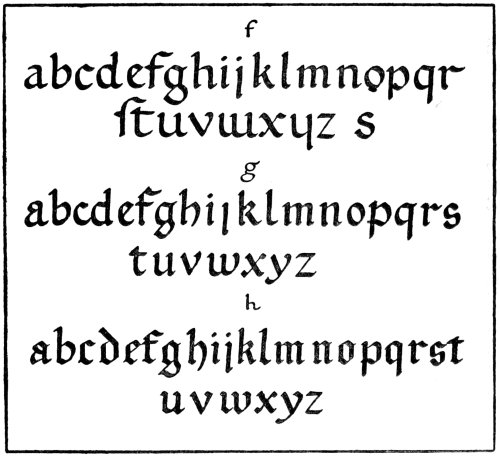 f
abcdefghijklmnopqr
ſtuvwxyz s
g
abcdefghijklmnopqrs
tuvwxyz
h
abcdefghijklmnopqrst
uvwxyz